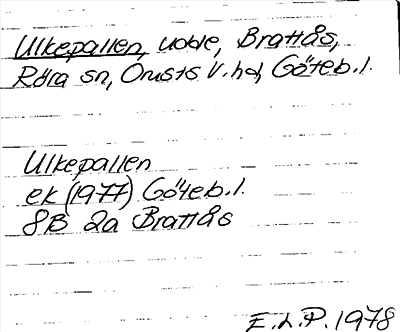 Ulkepallen, udde, Brattås,
Röra sn, Orusts V. hd, Göteb. l.
Ulkepallen
ek (1977) Göteb. l.
8B 2a Brattås
E.L.P. 1978